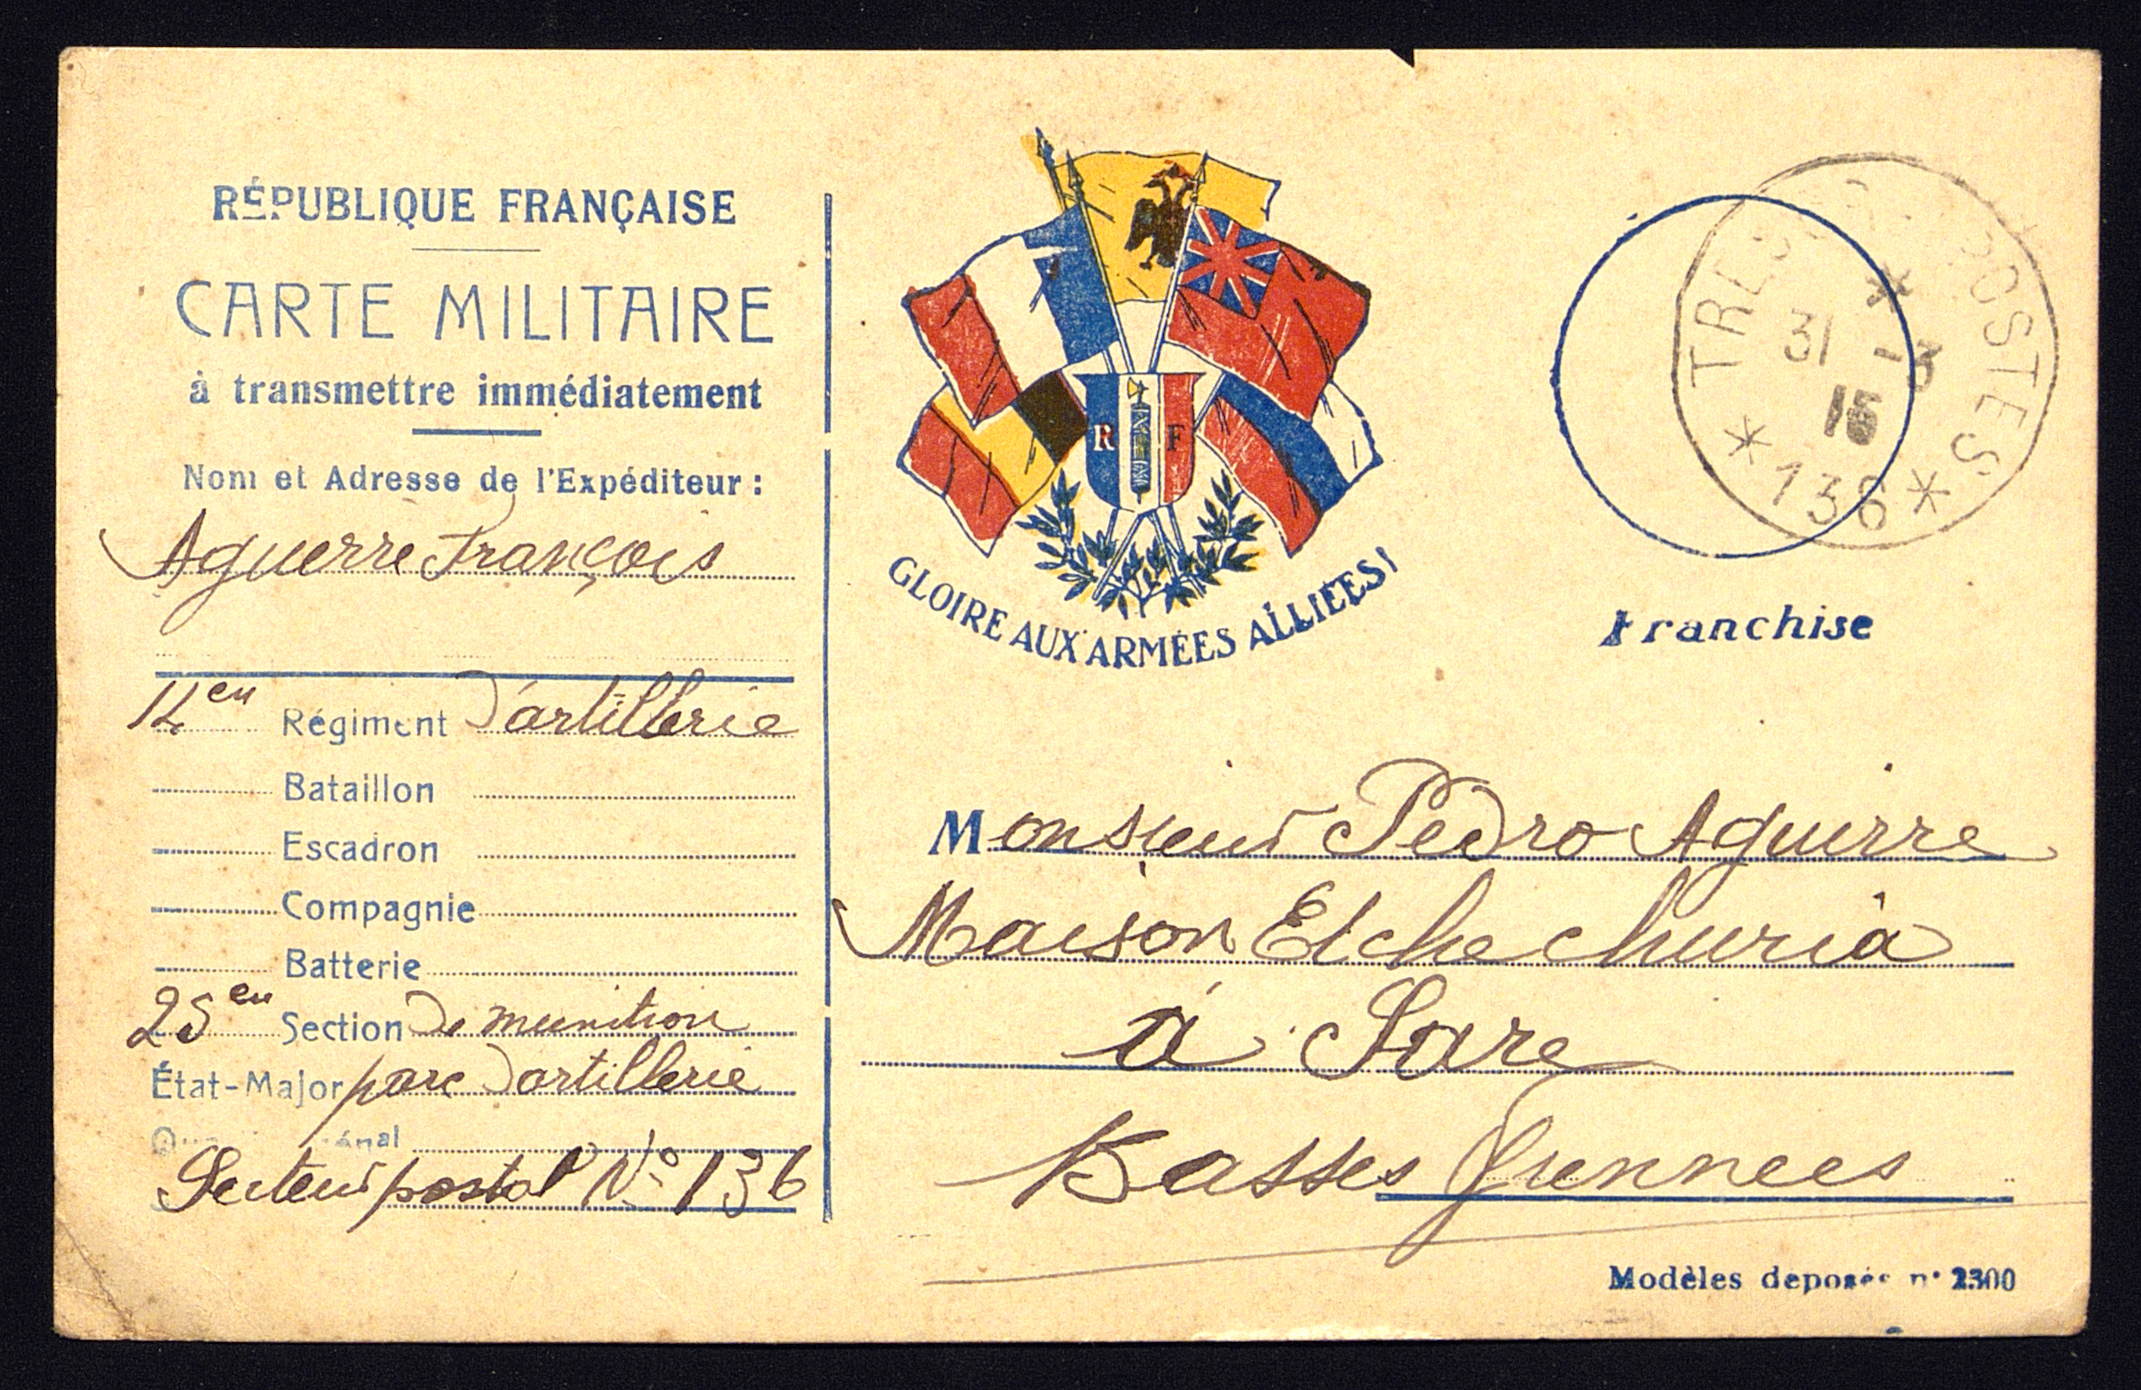 RÉPUBLIQUE FRANÇAISE
CARTE MILITAIRE
à transmettre immédiatement
Nom et Adresse de l'Expéditeur :
Aguerre François
Régiment D'artillerie
Bataillon
Escadron
Compagnie
Batterie
25en Section De munition
État-Major parc D'artillerie
Secteur postal N° 136
R F
GLOIRE AUX ARMÉES ALLIÉES!
POSTES
31 -3
*136*
Franchise
Monsieur Pedro Aguerre
Maison Etchechuria
à Sare
Basses Pyrennees
Modèles deposés n° 2300